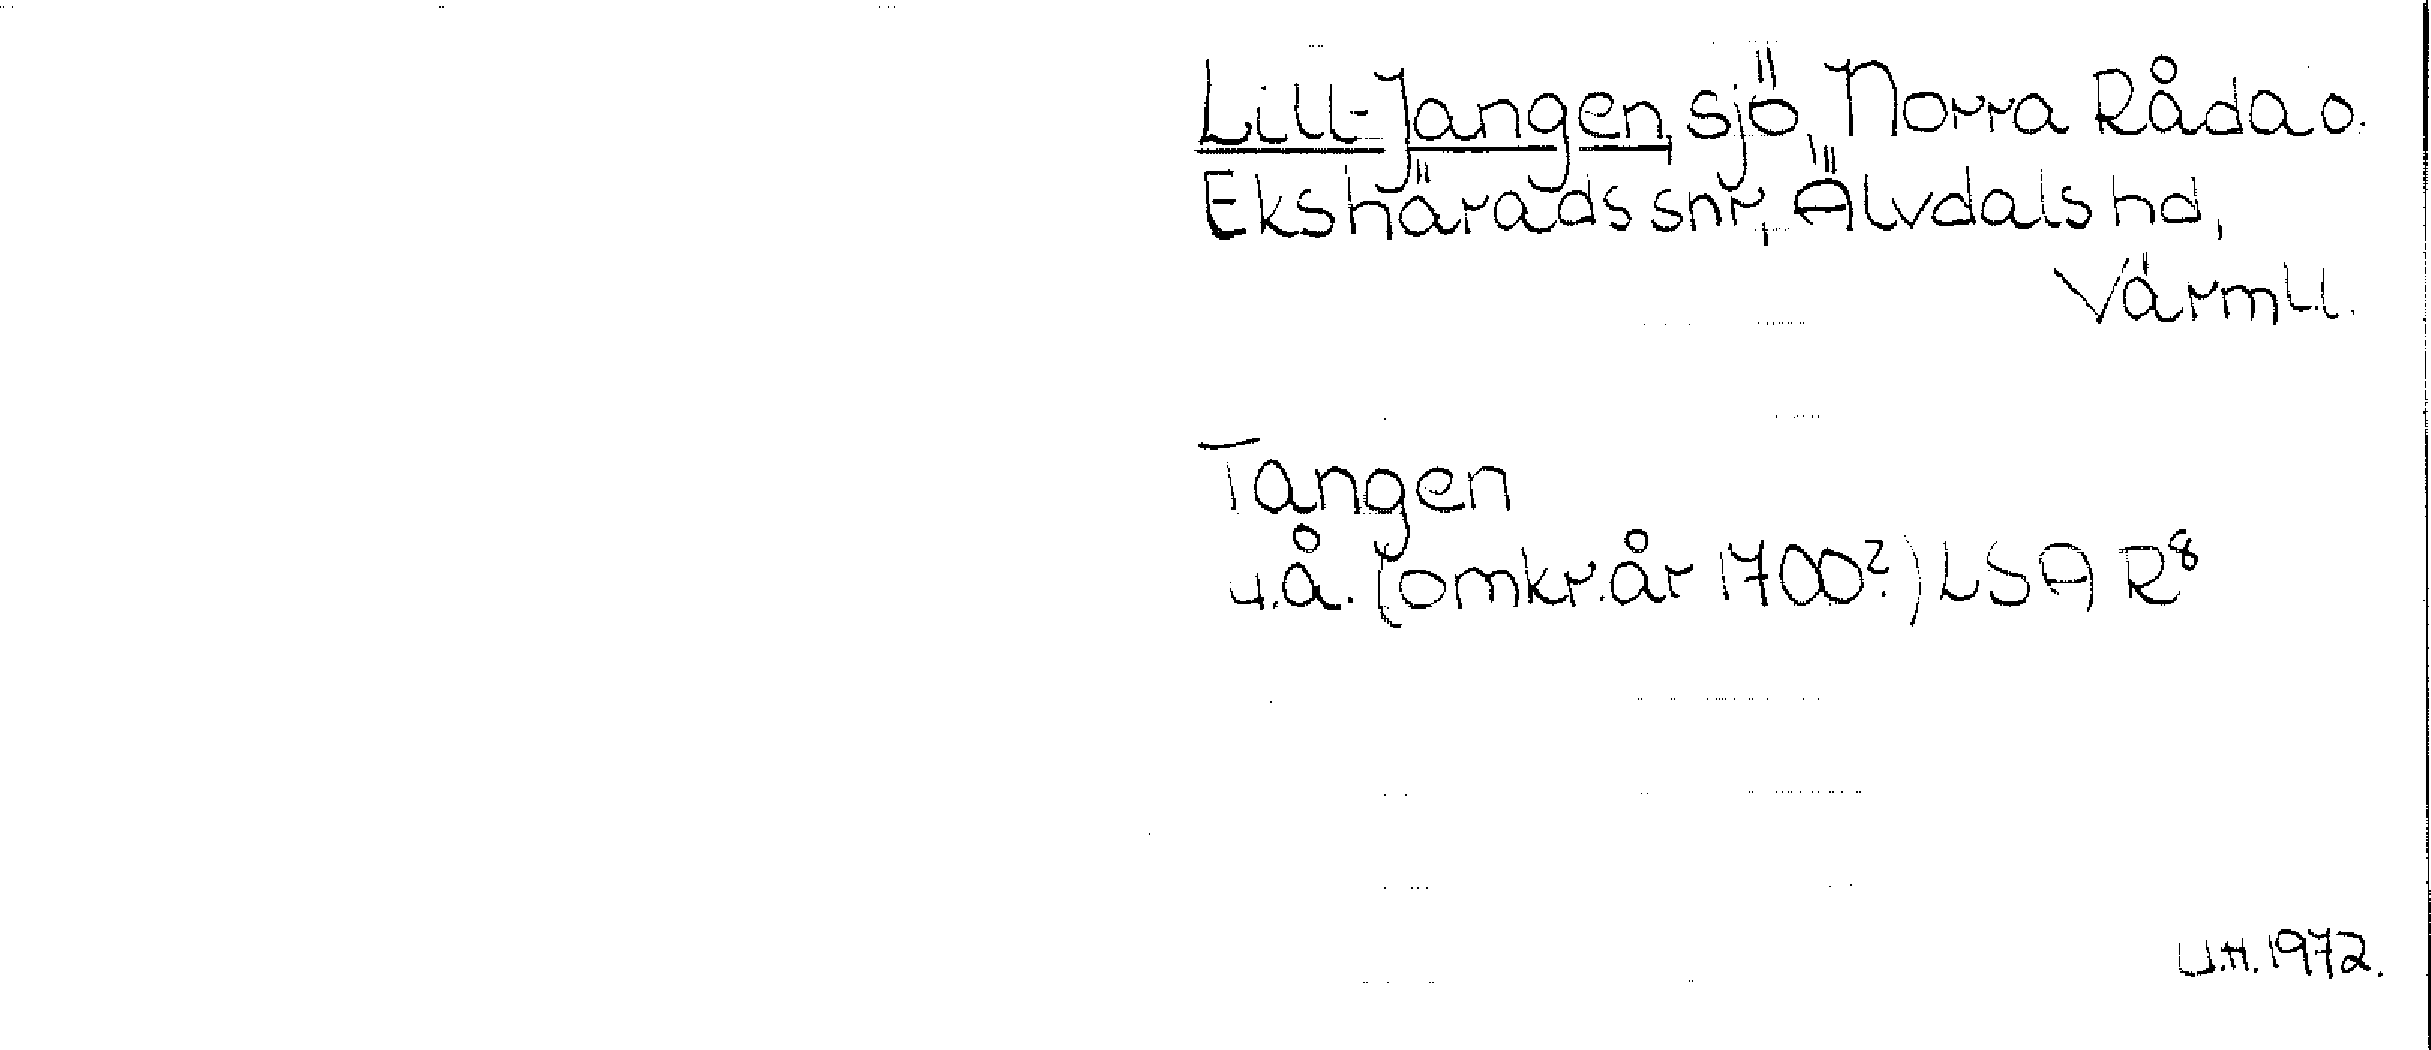 Lill-Jangen, sjö, Norra Råda o.
Ekshärads snr, Älvdals hd,
Värml.
Tangen
u.å. (omkr. år 1700?) LSA R8
U.H. 1972.